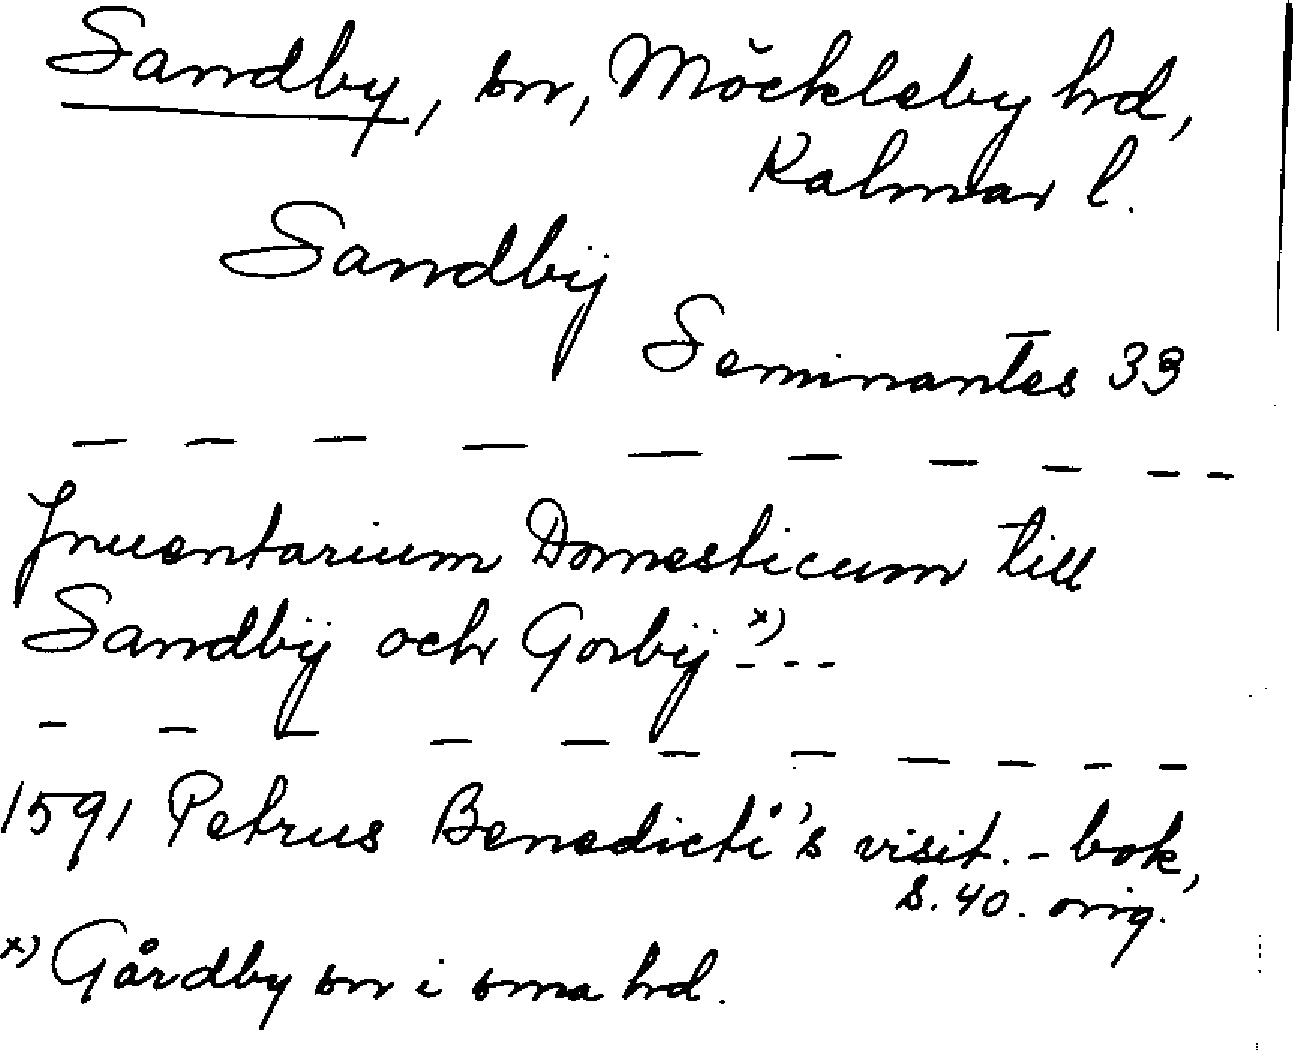 Sandby, sn, Möckleby hd,
Kalmar l.
Sandbÿ
Seminantes 33
— — — — — — — — — —
Inuentarium Domesticum till
Sandbÿ och Gorbÿ x) - - -
— — — — — — — — — — —
1591 Petrus Benedicti's visit.-bok,
s. 40. orig.
x) Gårdby sn i sma hd.